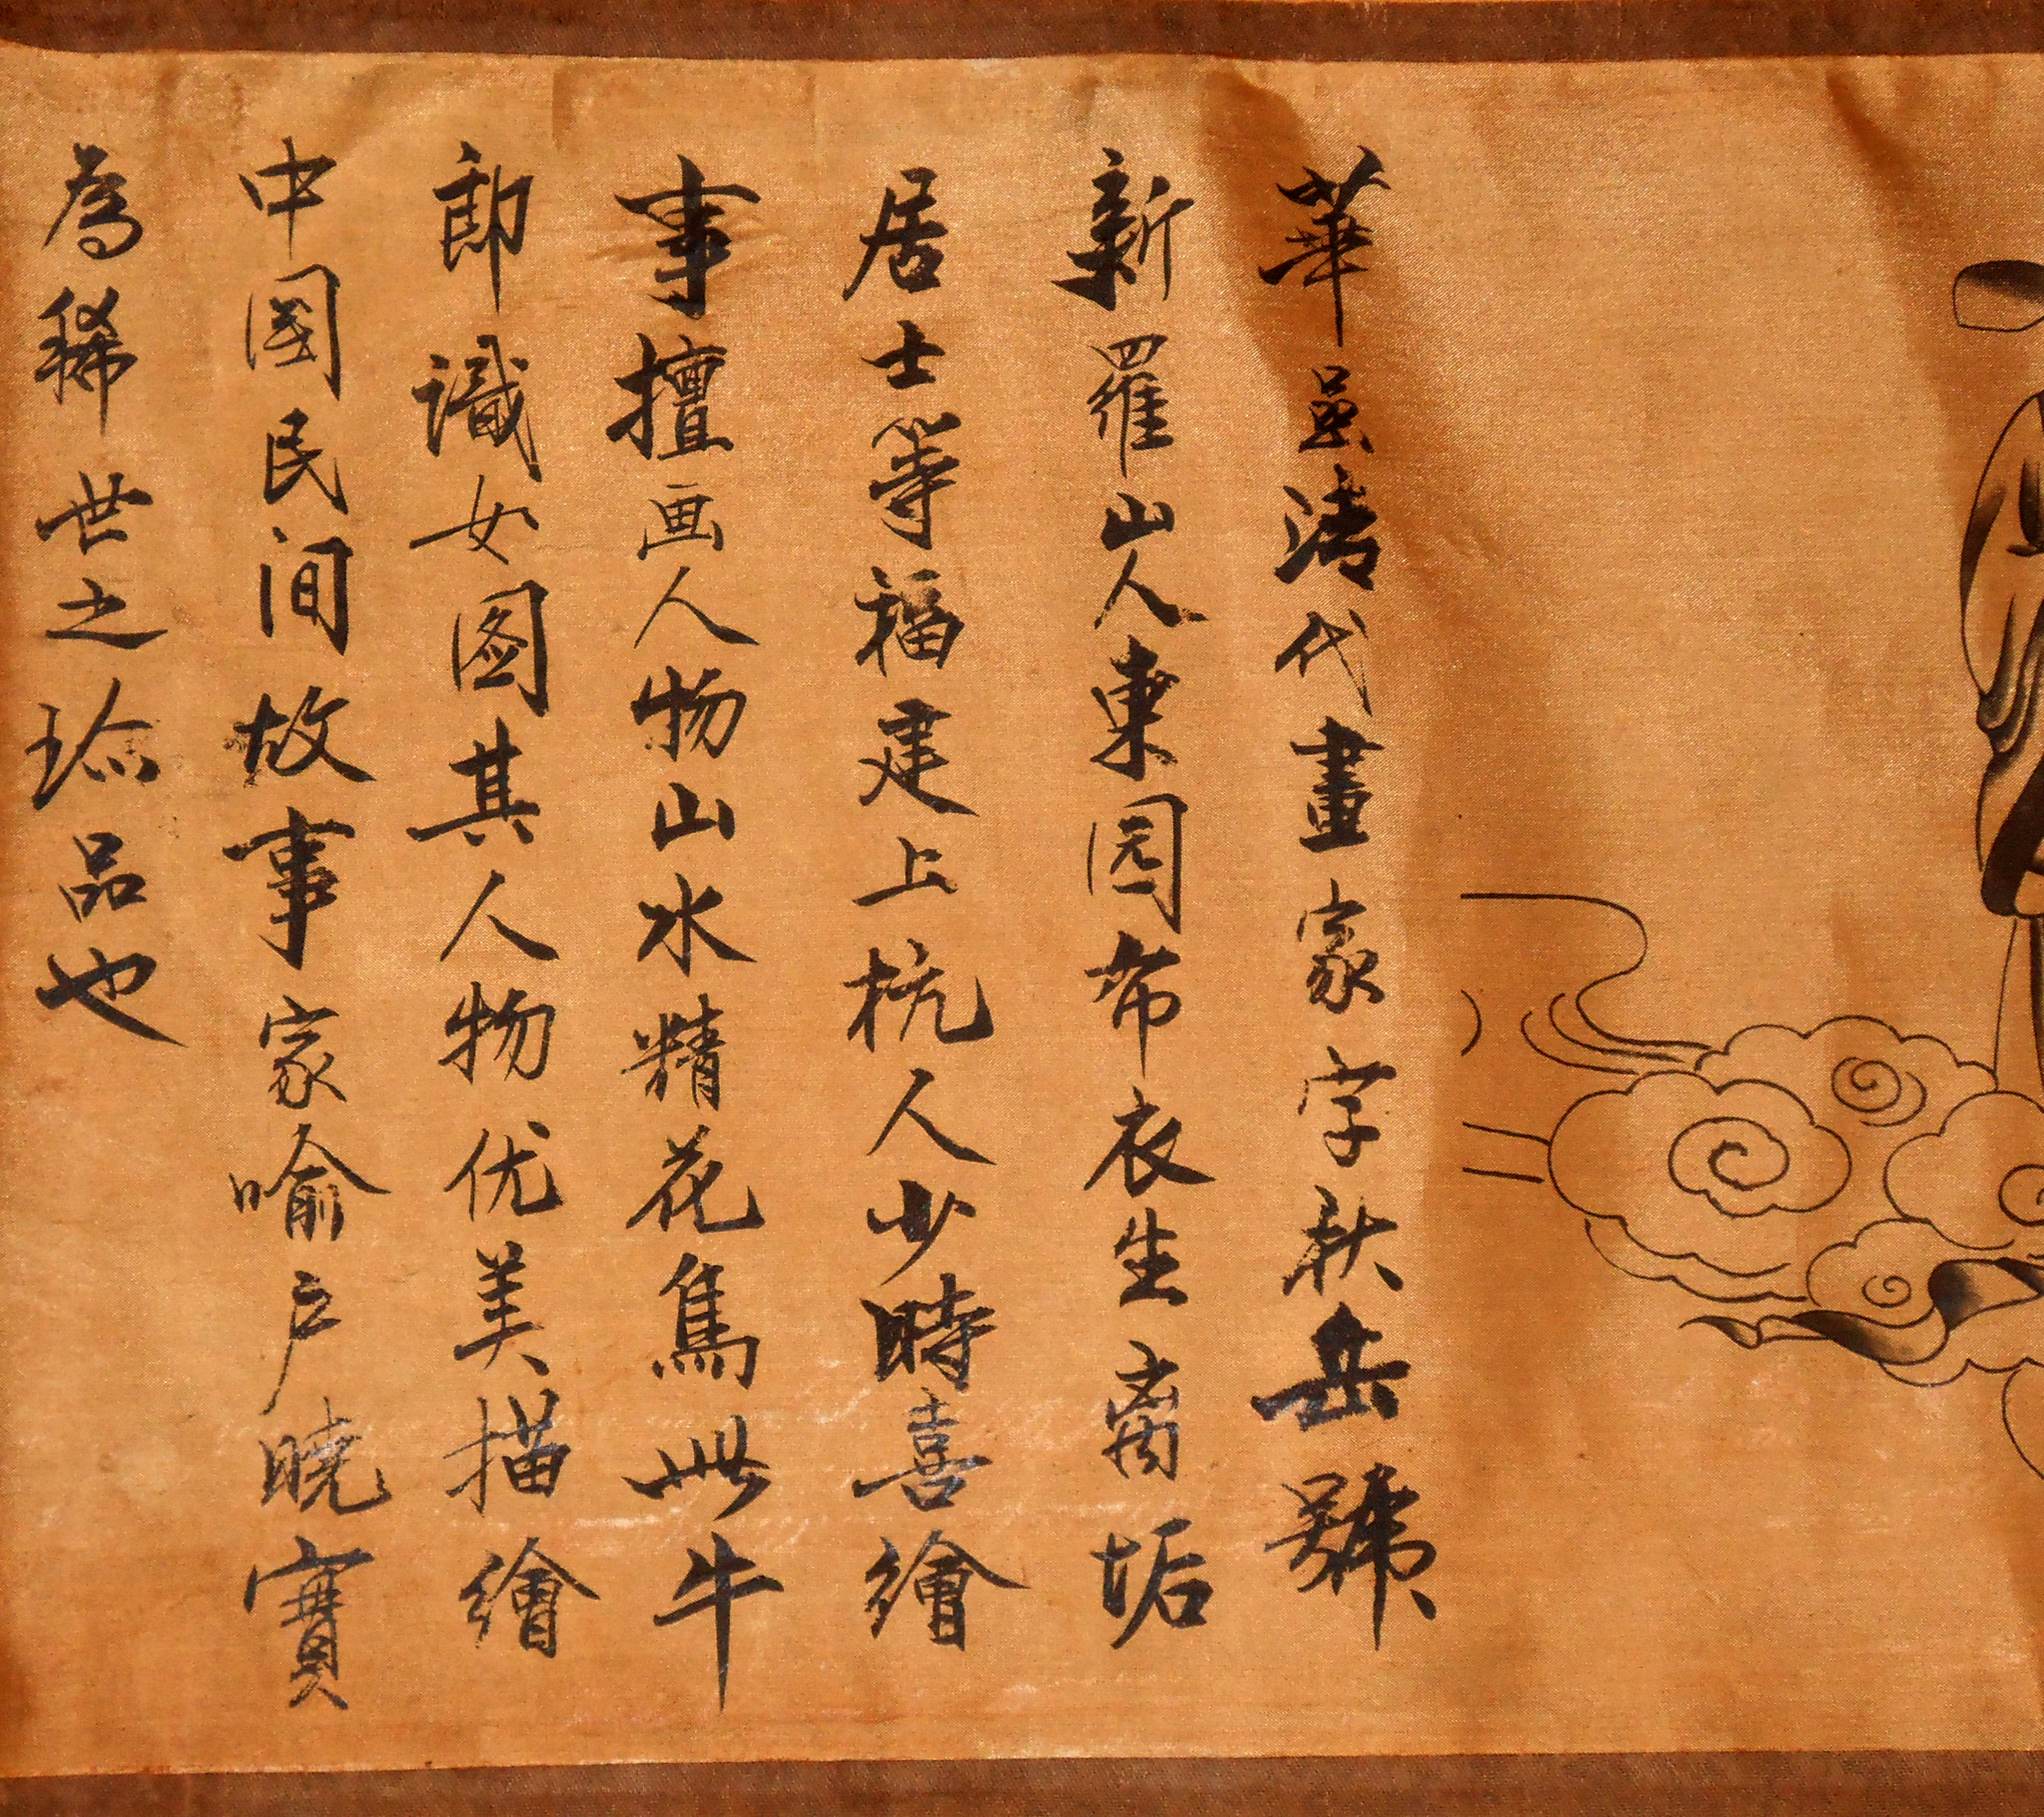 華嵒清代畫家字秋岳號
新羅山人東园布衣生离垢
居士等福建上杭人少時喜繪
事擅画人物山水精花鳥此牛
郎識女图其人物优美描繪
中國民间故事家喻户晓寶
為稀世之珎品也